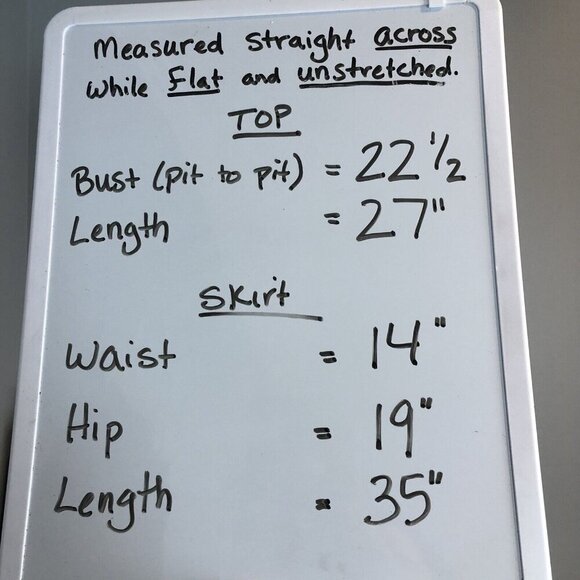 Measured straight across
while flat and unstretched.
TOP
Bust (pit to pit) = 22 1/2
Length = 27"
Skirt
Waist = 14"
Hip = 19"
Length = 35"